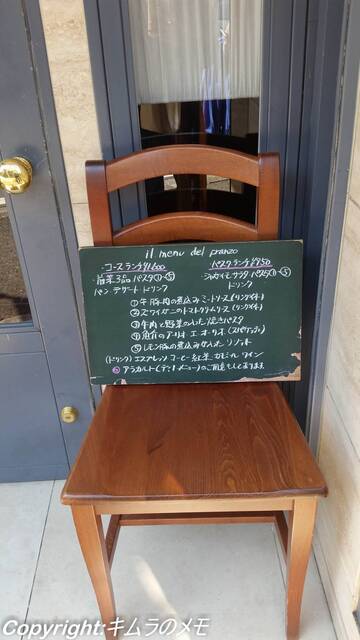 il menu del pranzo
・コースランチ¥1600
・前菜3品 パスタ①〜⑤
パン デザート ドリンク
パスタランチ¥950
サラダ パスタ①〜⑤
ドリンク
① 牛豚肉の煮込みミートソース(リングイネ)
② ズワイガニのトマトクリームソース(リングイネ)
③ 牛肉と野菜の入った焼きパスタ
④ 魚介のアーリオ・エ・オーリオ(スパゲッティ)
⑤ レモン 豚の煮込みが入った リゾット
(ドリンク) エスプレッソ コーヒー 紅茶 カモミール ワイン
アラカルト(ディナーメニュー)のご用意もしております
Copyright:キムラのメモ